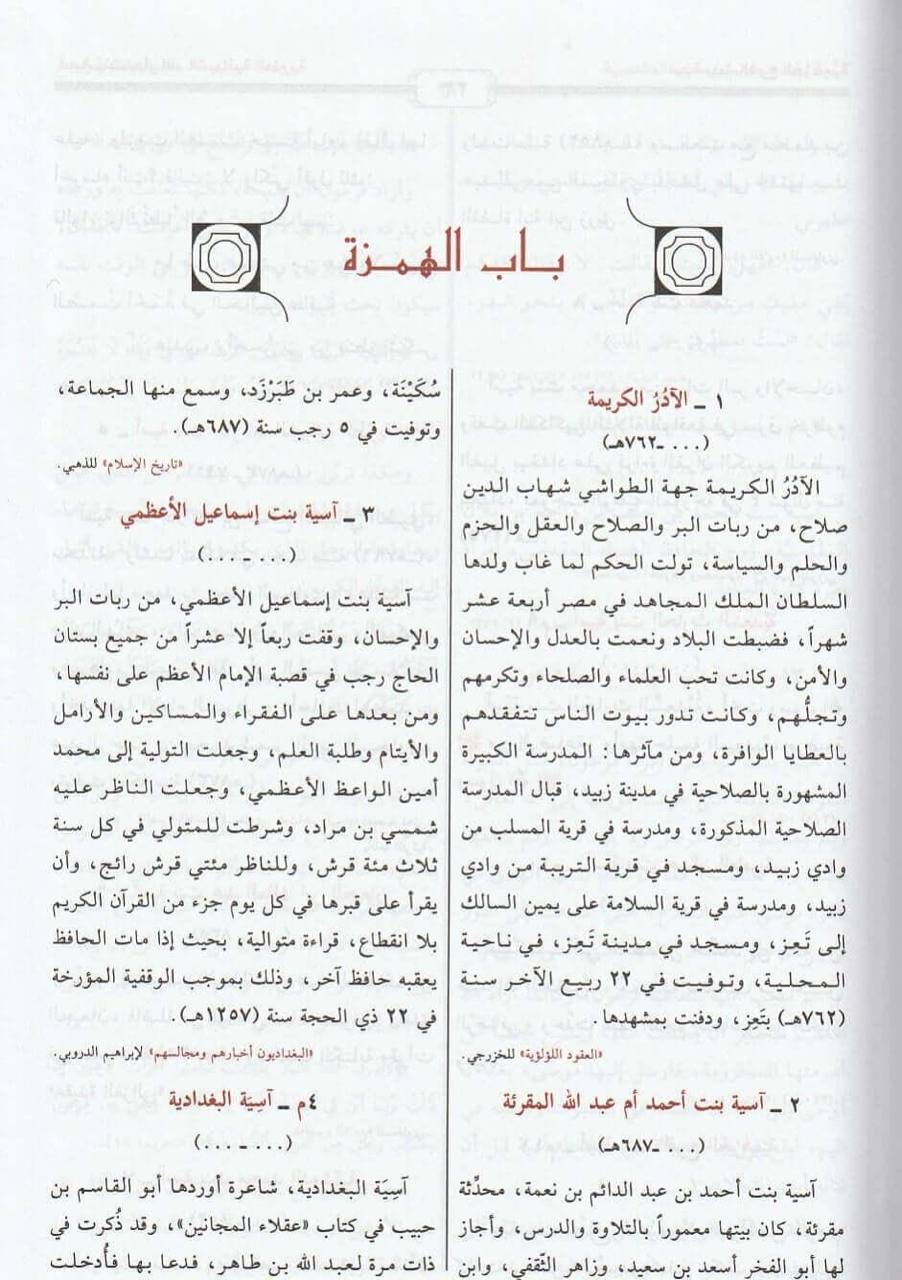 باب الهمزة
١ ـ الآدُرُ الكريمة
(... ـ ٧٦٢هـ)
الآدُرُ الكريمة جهة الطواشي شهاب الدين
صلاح، من ربات البر والصلاح والعقل والحزم
والحلم والسياسة، تولت الحكم لما غاب ولدها
السلطان الملك المجاهد في مصر أربعة عشر
شهراً، فضبطت البلاد ونعمت بالعدل والإحسان
والأمن، وكانت تحب العلماء والصلحاء وتكرمهم
وتجلُّهم، وكانت تدور بيوت الناس تتفقدهم
بالعطايا الوافرة، ومن مآثرها: المدرسة الكبيرة
المشهورة بالصلاحية في مدينة زبيد، قبال المدرسة
الصلاحية المذكورة، ومدرسة في قرية المسلب من
وادي زبيد، ومسجد في قرية التريبة من وادي
زبيد، ومدرسة في قرية السلامة على يمين السالك
إلى تَعِز، ومسجد في مدينة تَعِز، في ناحية
المحلية، وتوفيت في ٢٢ ربيع الآخر سنة
(٧٦٢هـ) بتَعِز، ودفنت بمشهدها.
«العقود اللؤلؤية» للخزرجي.
٢ ـ آسية بنت أحمد أم عبد الله المقرئة
(... ـ ٦٨٧هـ)
آسية بنت أحمد بن عبد الدائم بن نعمة، محدِّثة
مقرئة، كان بيتها معموراً بالتلاوة والدرس، وأجاز
لها أبو الفخر أسعد بن سعيد، وزاهر الثَّقفي، وابن
سُكَيْنَة، وعمر بن طَبَرْزَد، وسمع منها الجماعة،
وتوفيت في ٥ رجب سنة (٦٨٧هـ).
«تاريخ الإسلام» للذهبي.
٣ ـ آسية بنت إسماعيل الأعظمي
(... ـ ...)
آسية بنت إسماعيل الأعظمي، من ربات البر
والإحسان، وقفت ربعاً إلا عشراً من جميع بستان
الحاج رجب في قصبة الإمام الأعظم على نفسها،
ومن بعدها على الفقراء والمساكين والأرامل
والأيتام وطلبة العلم، وجعلت التولية إلى محمد
أمين الواعظ الأعظمي، وجعلت الناظر عليه
شمسي بن مراد، وشرطت للمتولي في كل سنة
ثلاث مئة قرش، وللناظر مئتي قرش رائج، وأن
يقرأ على قبرها في كل يوم جزء من القرآن الكريم
بلا انقطاع، قراءة متوالية، بحيث إذا مات الحافظ
يعقبه حافظ آخر، وذلك بموجب الوقفية المؤرخة
في ٢٢ ذي الحجة سنة (١٢٥٧هـ).
«البغداديون أخبارهم ومجالسهم» لإبراهيم الدروبي.
٤م ـ آسِيَة البغدادية
(... ـ ...)
آسِيَة البغدادية، شاعرة أوردها أبو القاسم بن
حبيب في كتاب «عقلاء المجانين»، وقد ذُكرت في
ذات مرة لعبد الله بن طاهر، فدعا بها فأُدخلت